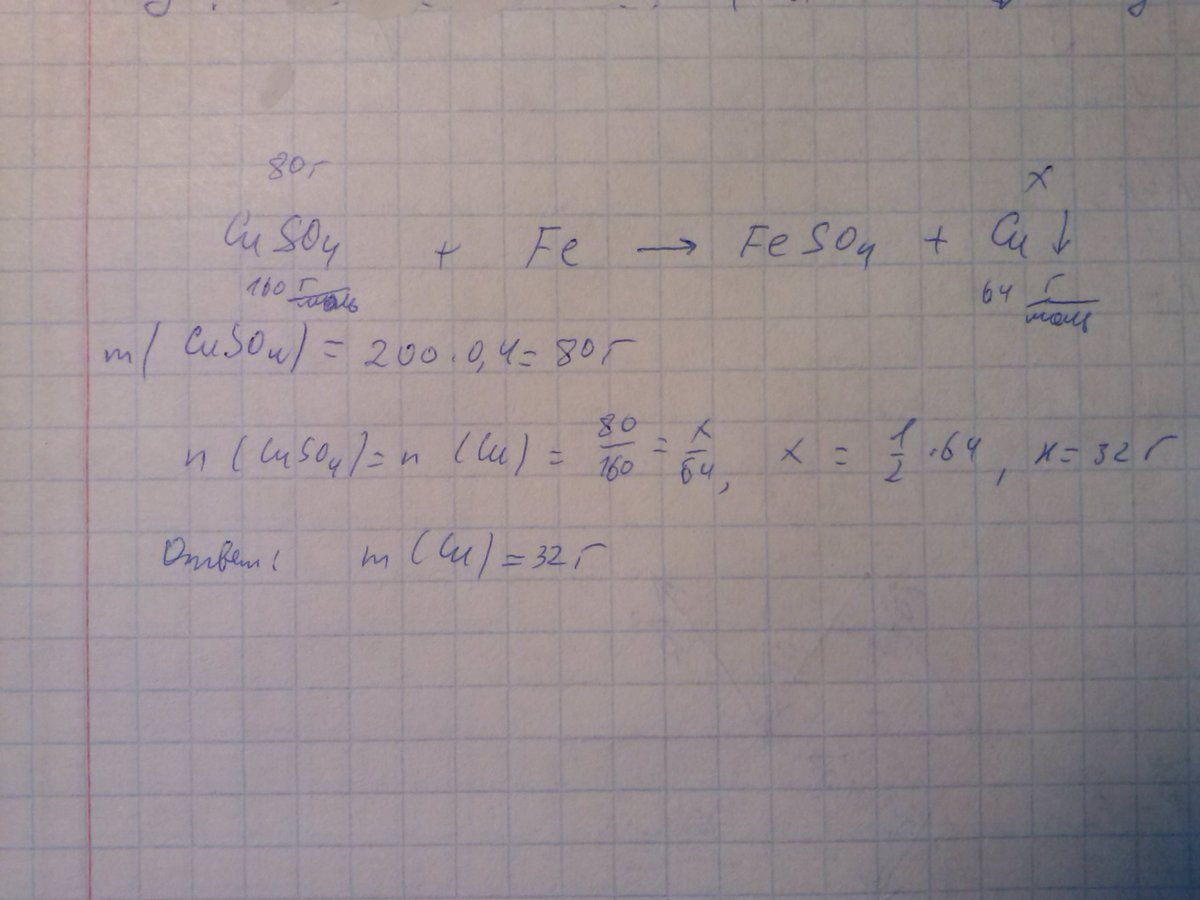 80г
x
CuSO4 + Fe → FeSO4 + Cu↓
160 г/моль
64 г/моль
m(CuSO4) = 200·0,4 = 80г
n (CuSO4) = n (Cu) = 80/160 = x/64, x = 1/2 ·64, x = 32 г
Ответ: m (Cu) = 32г